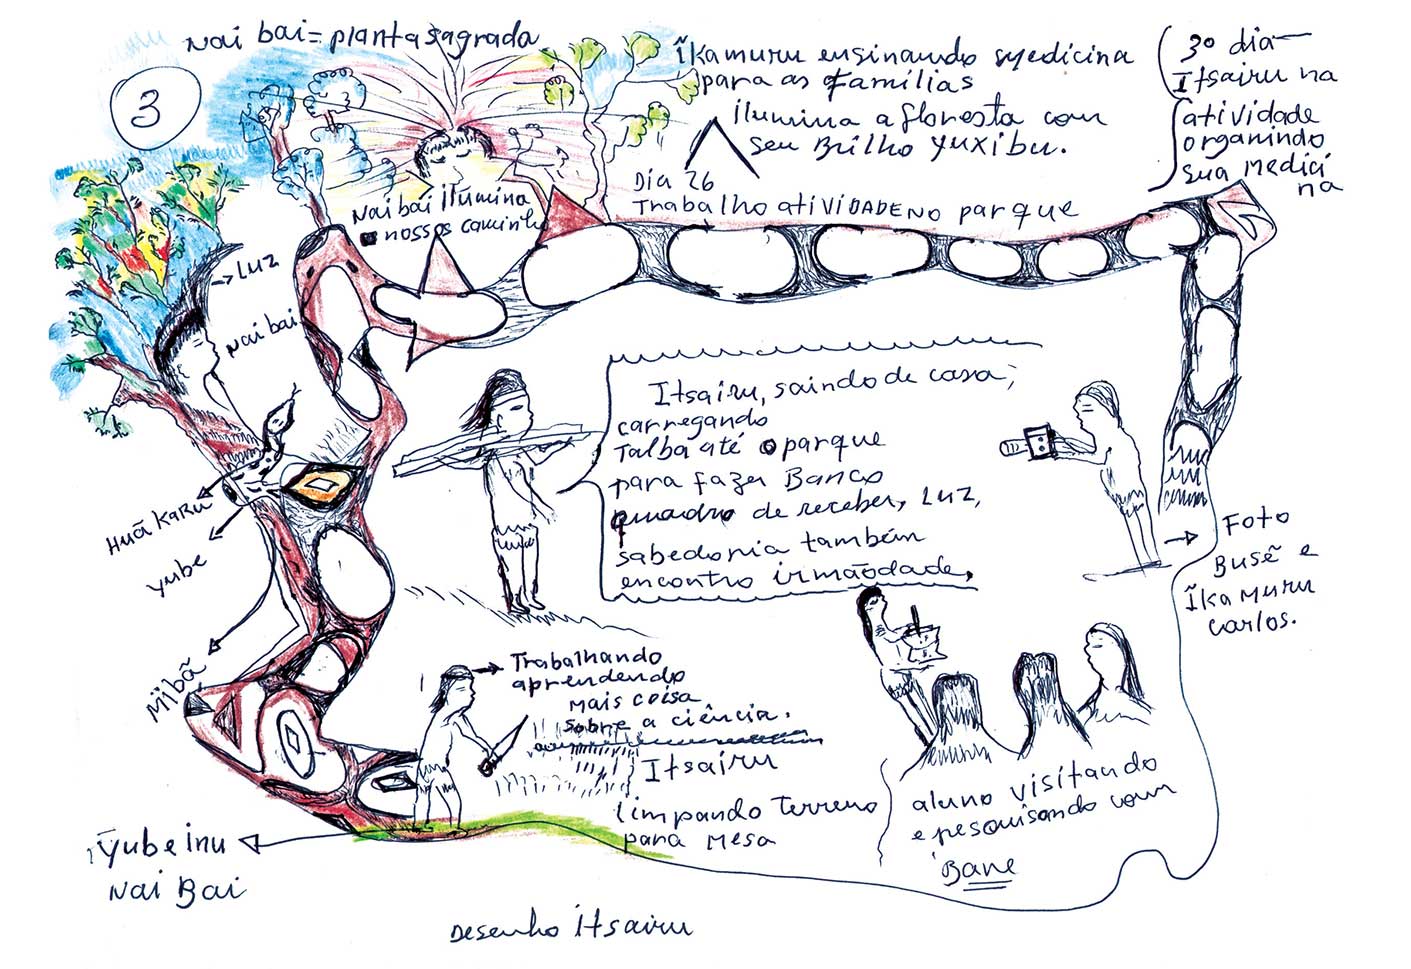 Nai bai = planta sagrada
3
Ĩkamuru ensinando medicina
para as famílias
ilumina a floresta com
seu Brilho yuxibu.
3º dia
Itsairu na
atividade
organindo
sua medici
na
Dia 26
Trabalho atividade no parque
Nai bai ilumina
nossos caminho
Luz
Nai bai
Huã Karu
yube
Mibã
Itsairu, saindo de casa,
carregando
Talba até o parque
para fazer Banco
quadro de receber, Luz,
sabedoria também
encontro irmãodade,
Foto
Busẽ e
Ĩkamuru
carlos.
Trabalhando
aprendendo
mais coisa
sobre a ciência.
Itsairu
limpando Terreno
para mesa
aluno visitando
e pesquisando com
Bane
yube inu
Nai Bai
Desenho Itsairu